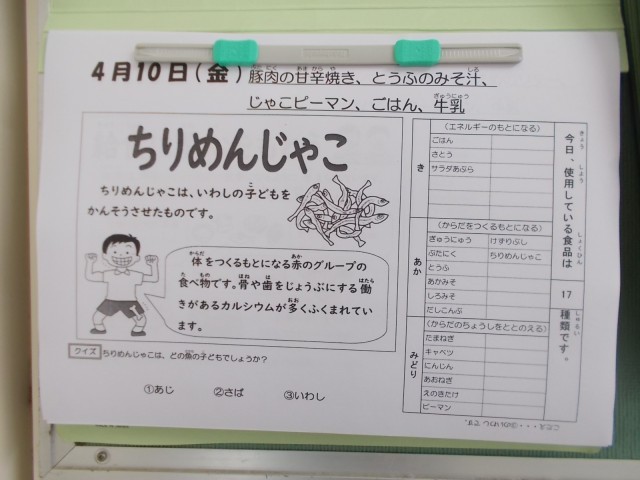 4月10日(金)豚肉の甘辛焼き、とうふのみそ汁、
じゃこピーマン、ごはん、牛乳
ちりめんじゃこ
ちりめんじゃこは、いわしの子どもを
かんそうさせたものです。
体をつくるもとになる赤のグループの
食べ物です。骨や歯をじょうぶにする働
きがあるカルシウムが多くふくまれてい
ます。
クイズ ちりめんじゃこは、どの魚の子どもでしょうか?
①あじ ②さば ③いわし
今日、使用している食品は
17
種類です。
き
(エネルギーのもとになる)
ごはん
さとう
サラダあぶら
あか
(からだをつくるもとになる)
ぎゅうにゅう けずりぶし
ぶたにく ちりめんじゃこ
とうふ
あかみそ
しろみそ
だしこんぶ
みどり
(からだのちょうしをととのえる)
たまねぎ
キャベツ
にんじん
あおねぎ
えのきたけ
ピーマン
こたえ・・・③いわし です。